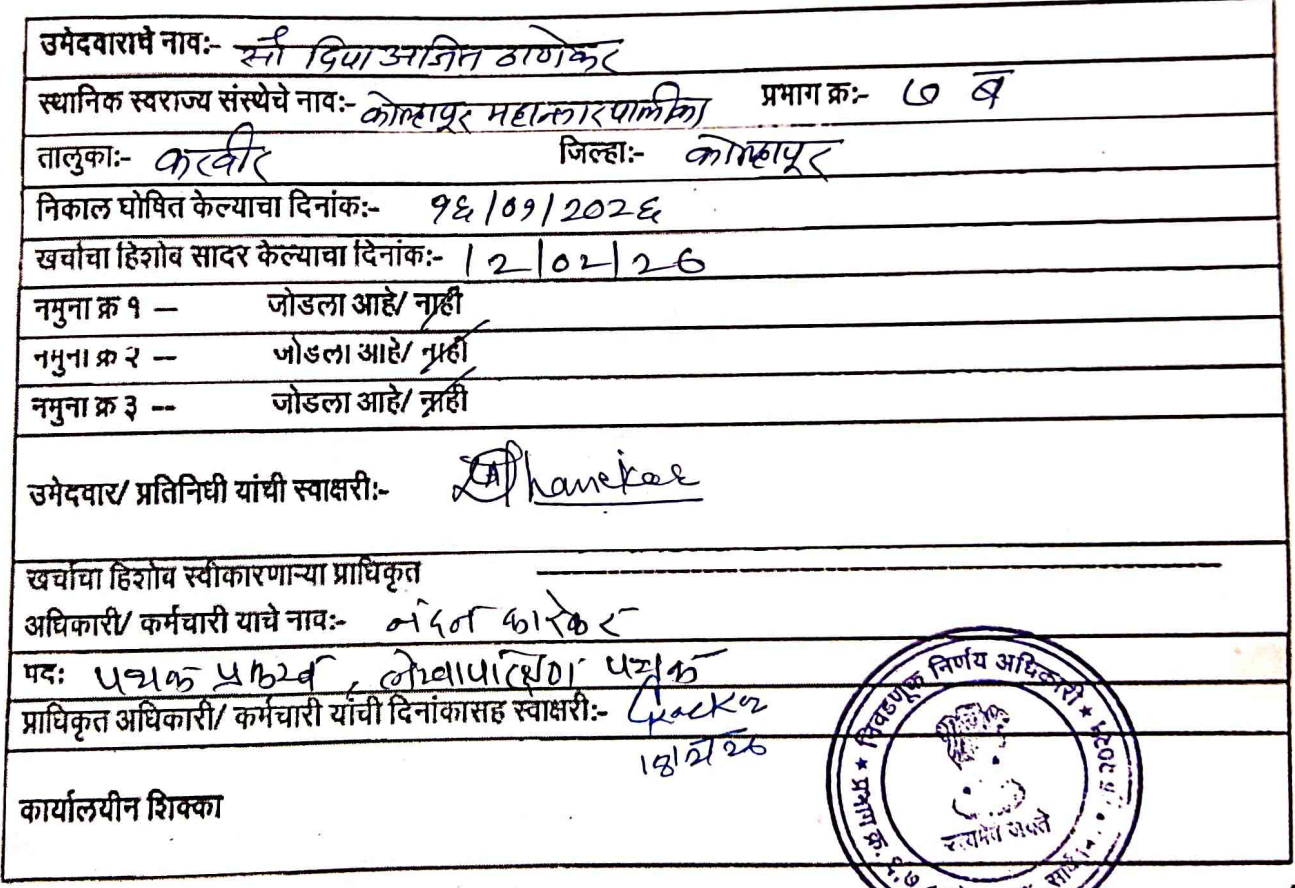 उमेदवाराचे नाव:- सौ दिपा अजित ठाणेकर
स्थानिक स्वराज्य संस्थेचे नाव:- कोल्हापूर महानगरपालीका प्रभाग क्र:- ७ ब
तालुका:- करवीर जिल्हा:- कोल्हापूर
निकाल घोषित केल्याचा दिनांक:- १६/०१/२०२६
खर्चाचा हिशोब सादर केल्याचा दिनांक:- 12/02/26
नमुना क्र १ – जोडला आहे/ नाही
नमुना क्र २ – जोडला आहे/ नाही
नमुना क्र ३ -- जोडला आहे/ नाही
उमेदवार/ प्रतिनिधी यांची स्वाक्षरी:- Thanekar
खर्चाचा हिशोब स्वीकारणाऱ्या प्राधिकृत
अधिकारी/ कर्मचारी याचे नाव:- नंदन कारेकर
पद: पथक प्रमुख, लेखापरिक्षण पथक
प्राधिकृत अधिकारी/ कर्मचारी यांची दिनांकसह स्वाक्षरी:-
कार्यालयीन शिक्का
निवडणूक निर्णय अधिकारी
सत्यमेव जयते